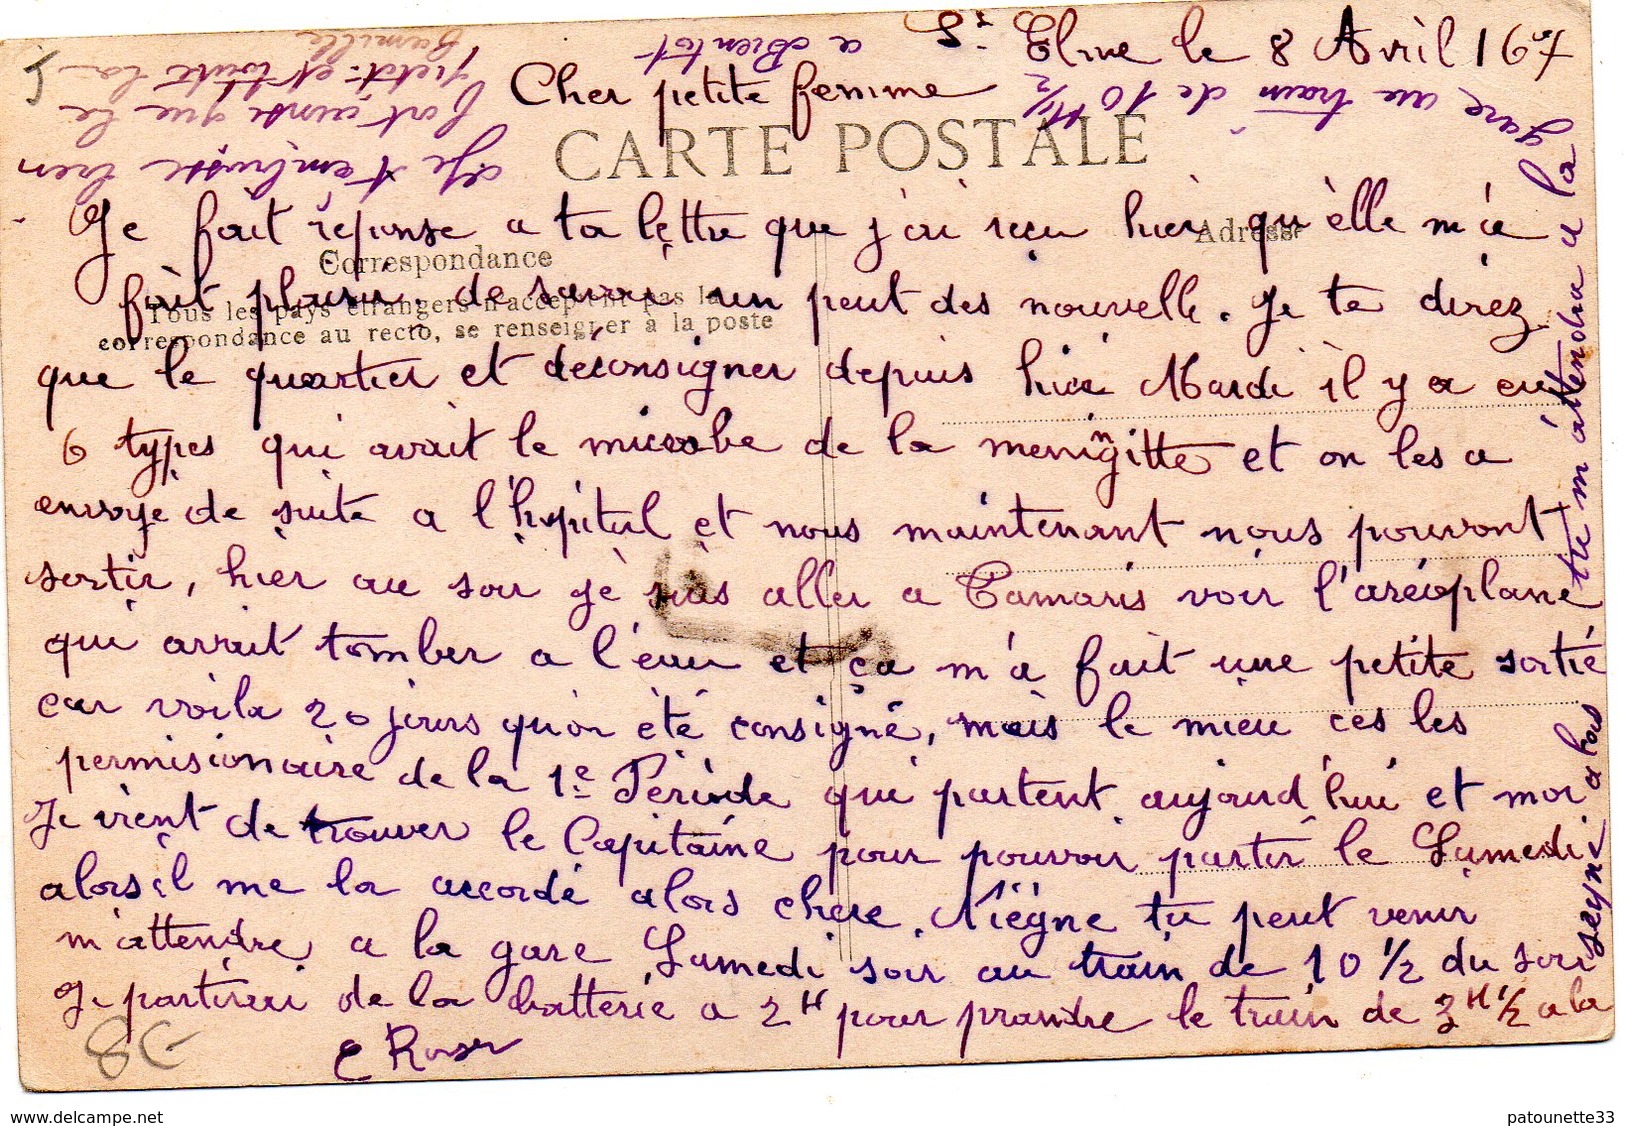 St Elme le 8 Avril 167
Cher petite femme
CARTE POSTALE
Je fait réponse a ta lettre que j'ai reçu hier qu'èlle m'a
Correspondance
Adresse
fait plaisir. de savoir un peut des nouvelle. Je te direz
Tous les pays étrangers n'acceptent pas la
correspondance au recto, se renseigner à la poste
que le quartier et déconsigner depuis hier Mardi il y a eu
6 types qui avait le microbe de la meningitte et on les a
envoyé de suite a l'hopital et nous maintenant nous pouvont
sortir, hier au soir je suis aller a Tamaris voir l'aréoplane
qui avait tomber a l'eau et ça m'a fait une petite sortie
car voila 20 jours qu'on été consigné, mais le mieu ces les
permisionaire de la 1e Période qui partent aujourd'hui et moi
Je vient de trouver le Capitaine pour pouvoir partir le Samedi
alors il me la accordé alors chere Niègne tu peut venir
m'attendre a la gare Samedi soir au train de 10 1/2 du soir
Je partirai de la batterie a 2H pour prandre le train de 3H 1/2 a la
seyne alors
tu m'attendra a la
gare au train de 10 H 1/2
a Bientot
Je t'embrasse bien
fort ainsi que le
petit et toute la
famille
E Roser
8€
www.delcampe.net
patounette33